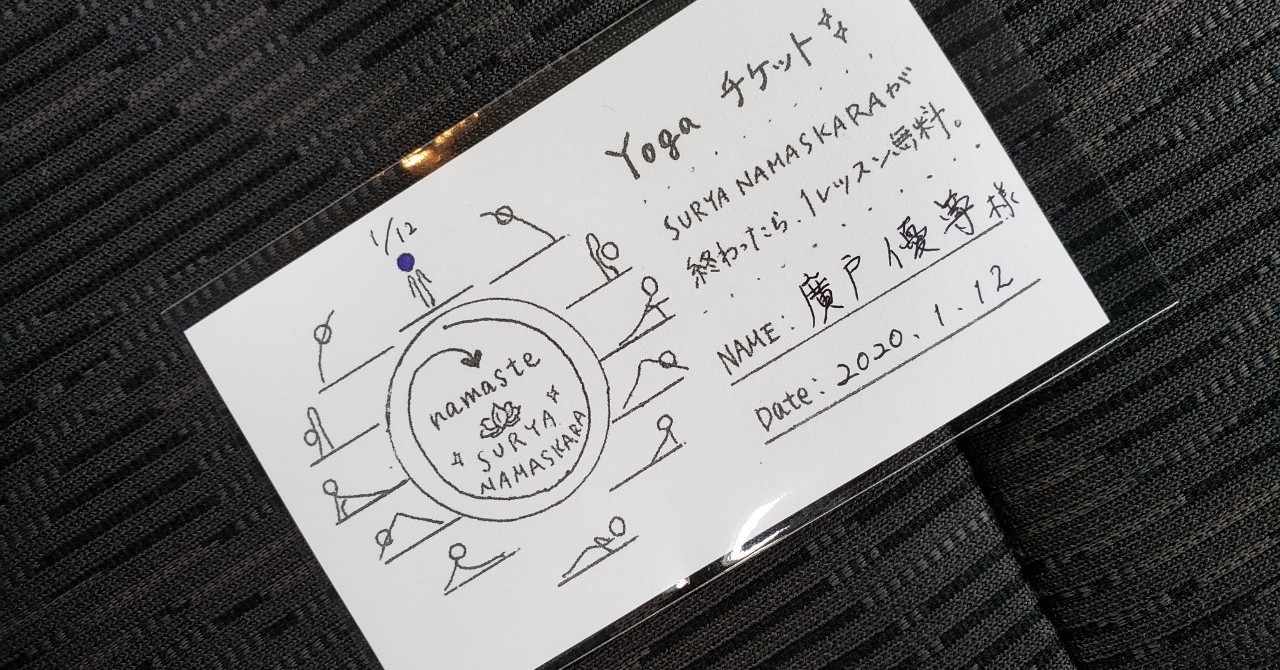 Yoga チケット
SURYA NAMASKARAが
終わったら、1レッスン無料。
NAME: 廣戸 優等 様
Date: 2020.1.12
1/12
namaste
SURYA
NAMASKARA